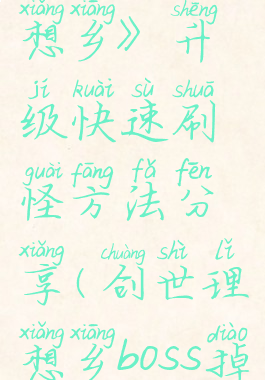 xiǎng xiāng shēng
想乡》 升
jí kuài sù shuā
级快速刷
guài fāng fǎ fēn
怪方法分
xiǎng chuàng shì lǐ
享(创世理
xiǎng xiāng diào
想乡boss掉